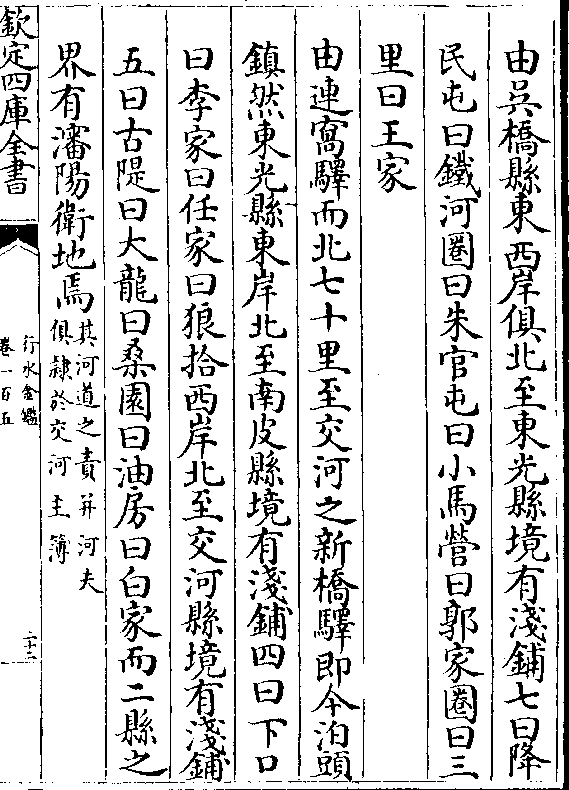 由吳橋縣東西岸俱北至東光縣境有淺鋪七曰降
民屯曰鐵河圈曰朱官屯曰小馬營曰郭家圈曰三
里曰王家
由連窩驛而北七十里至交河之新橋驛即今泊頭
鎮然東光縣東岸北至南皮縣境有淺鋪四曰下口
曰李家曰任家曰狼拾西岸北至交河縣境有淺鋪
五曰古隄曰大龍曰桑園曰油房曰白家而二縣之
界有瀋陽衛地焉其河道之責并河夫
俱隸於交河主簿
欽定四庫全書
行水金鑑
卷一百五
二十二